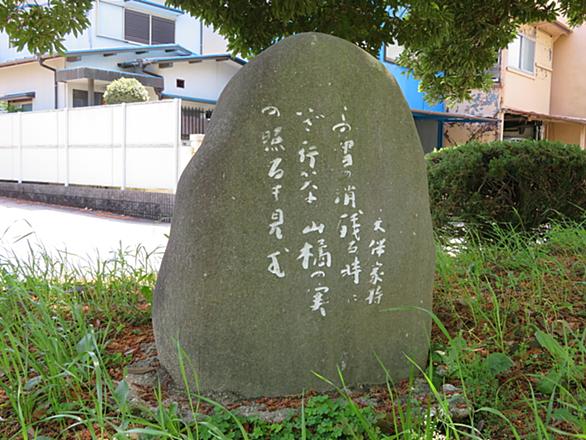 この雪の消残る時に
いざ行かな山橘の実
の照るも見む
大伴家持